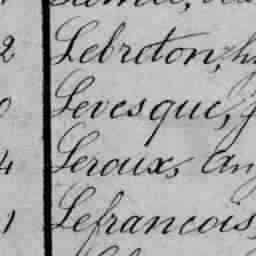 2 Lebreton, h
Levesque, j
4 Leroux, An
1 Lefrancois,